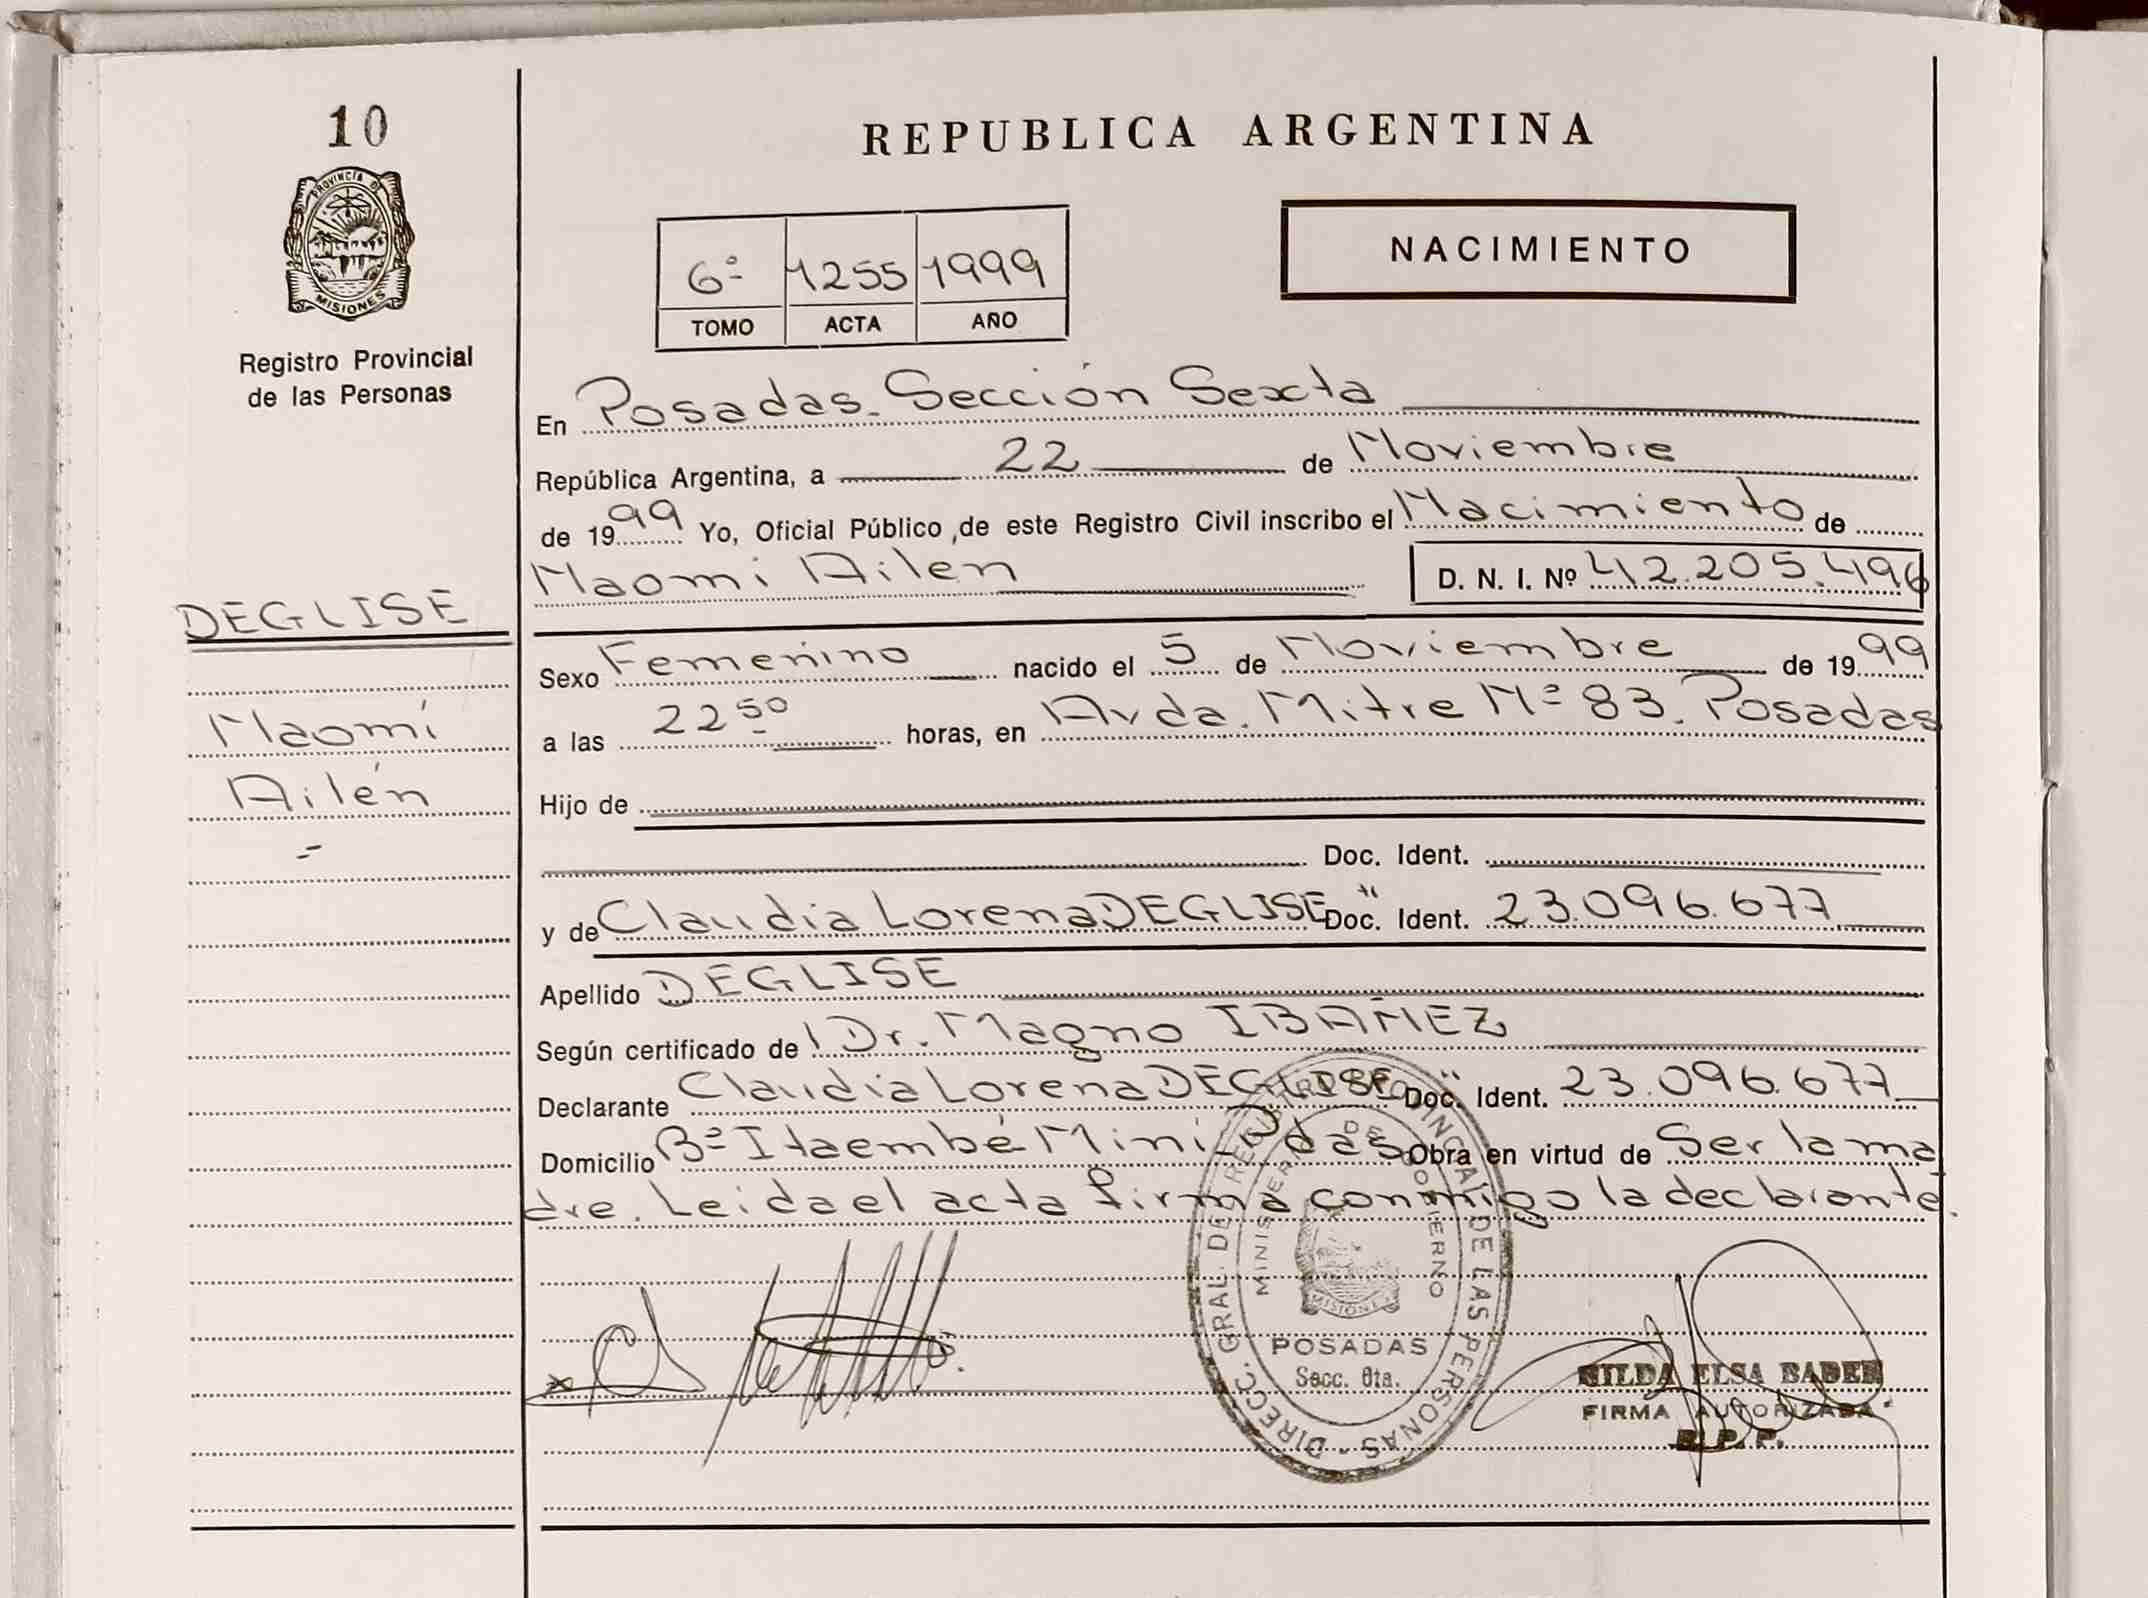 10
PROVINCIA DE
MISIONES
Registro Provincial
de las Personas
DEGLISE
Naomí
Ailén
REPUBLICA ARGENTINA
6º 1255 1999
TOMO ACTA AÑO
NACIMIENTO
En Posadas. Sección Sexta
República Argentina, a 22 de Noviembre
de 1999 Yo, Oficial Público, de este Registro Civil inscribo el Nacimiento de
Naomi Ailen D. N. I. Nº 42.205.496
Sexo Femenino nacido el 5 de Noviembre de 1999
a las 22 50 horas, en Avda. Mitre Nº 83. Posadas
Hijo de
Doc. Ident.
y de Claudia Lorena DEGLISE Doc. Ident. 23.096.677
Apellido DEGLISE
Según certificado de Dr. Magno IBAÑEZ
Declarante Claudia Lorena DEGLISE Doc. Ident. 23.096.677
Domicilio Bº Itaembé Miní - Pdas Obra en virtud de Ser la ma
dre. Leida el acta firma conmigo la declarante.
DIRECC. GRAL. DEL REGISTRO PROVINCIAL DE LAS PERSONAS -
MINISTERIO DE GOBIERNO
MISIONES
POSADAS
Secc. 6ta.
HILDA ELSA BADER
FIRMA AUTORIZADA
R. P. P.